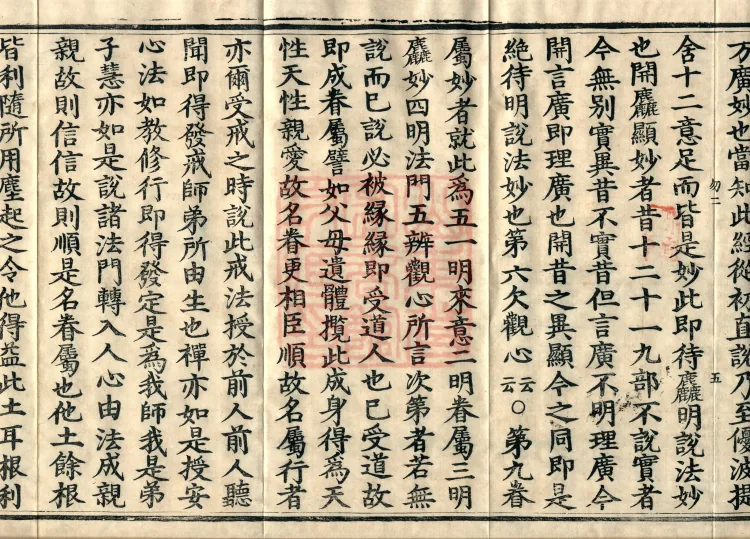 方廣妙也當知此經從初直說乃至優波提
勿二
五
舍十二意足而皆是妙此即待麤明說法妙
也開麤顯妙者昔十二十一九部不說實者
今無別實異昔不實昔但言廣不明理廣今
開言廣即理廣也開昔之異顯今之同即是
絕待明說法妙也第六欠觀心云云○第九眷
屬妙者就此為五一明來意二明眷屬三明
麤妙四明法門五辨觀心所言次第者若無
說而已說必被緣緣即受道人也已受道故
即成眷屬譬如父母遺體攬此成身得為天
性天性親愛故名眷更相臣順故名屬行者
亦爾受戒之時說此戒法授於前人前人聽
聞即得發戒師弟所由生也禪亦如是授安
心法如教修行即得發定是為我師我是弟
子慧亦如是說諸法門轉入人心由法成親
親故則信信故則順是名眷屬也他土餘根
皆利隨所用塵起之令他得益此土耳根利